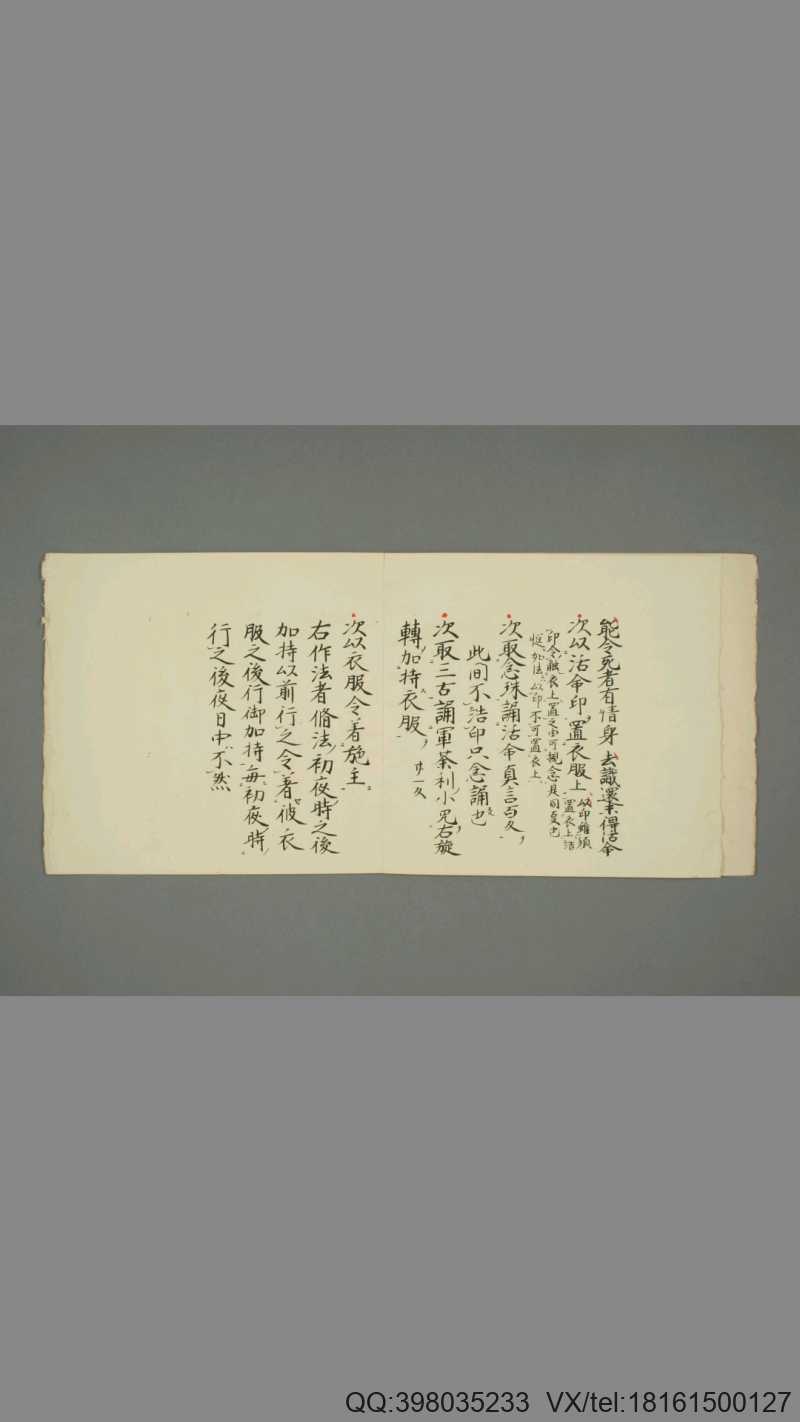 能令死者有情身 去識還来得活命
次以活命印置衣服上 以印雖須
置衣上活
印令触衣上置之由可観念是同事也
加法以印不可置衣上
次取念珠誦活命真言百反
此間不結印只念誦也
次取三古誦軍荼利小呪右旋
轉加持衣服 廿一反
次以衣服令着施主
右作法者脩法初夜時之後
加持以前行之令著彼衣
服之後行御加持毎初夜時
行之後夜日中不然
QQ:398035233 VX/tel:18161500127